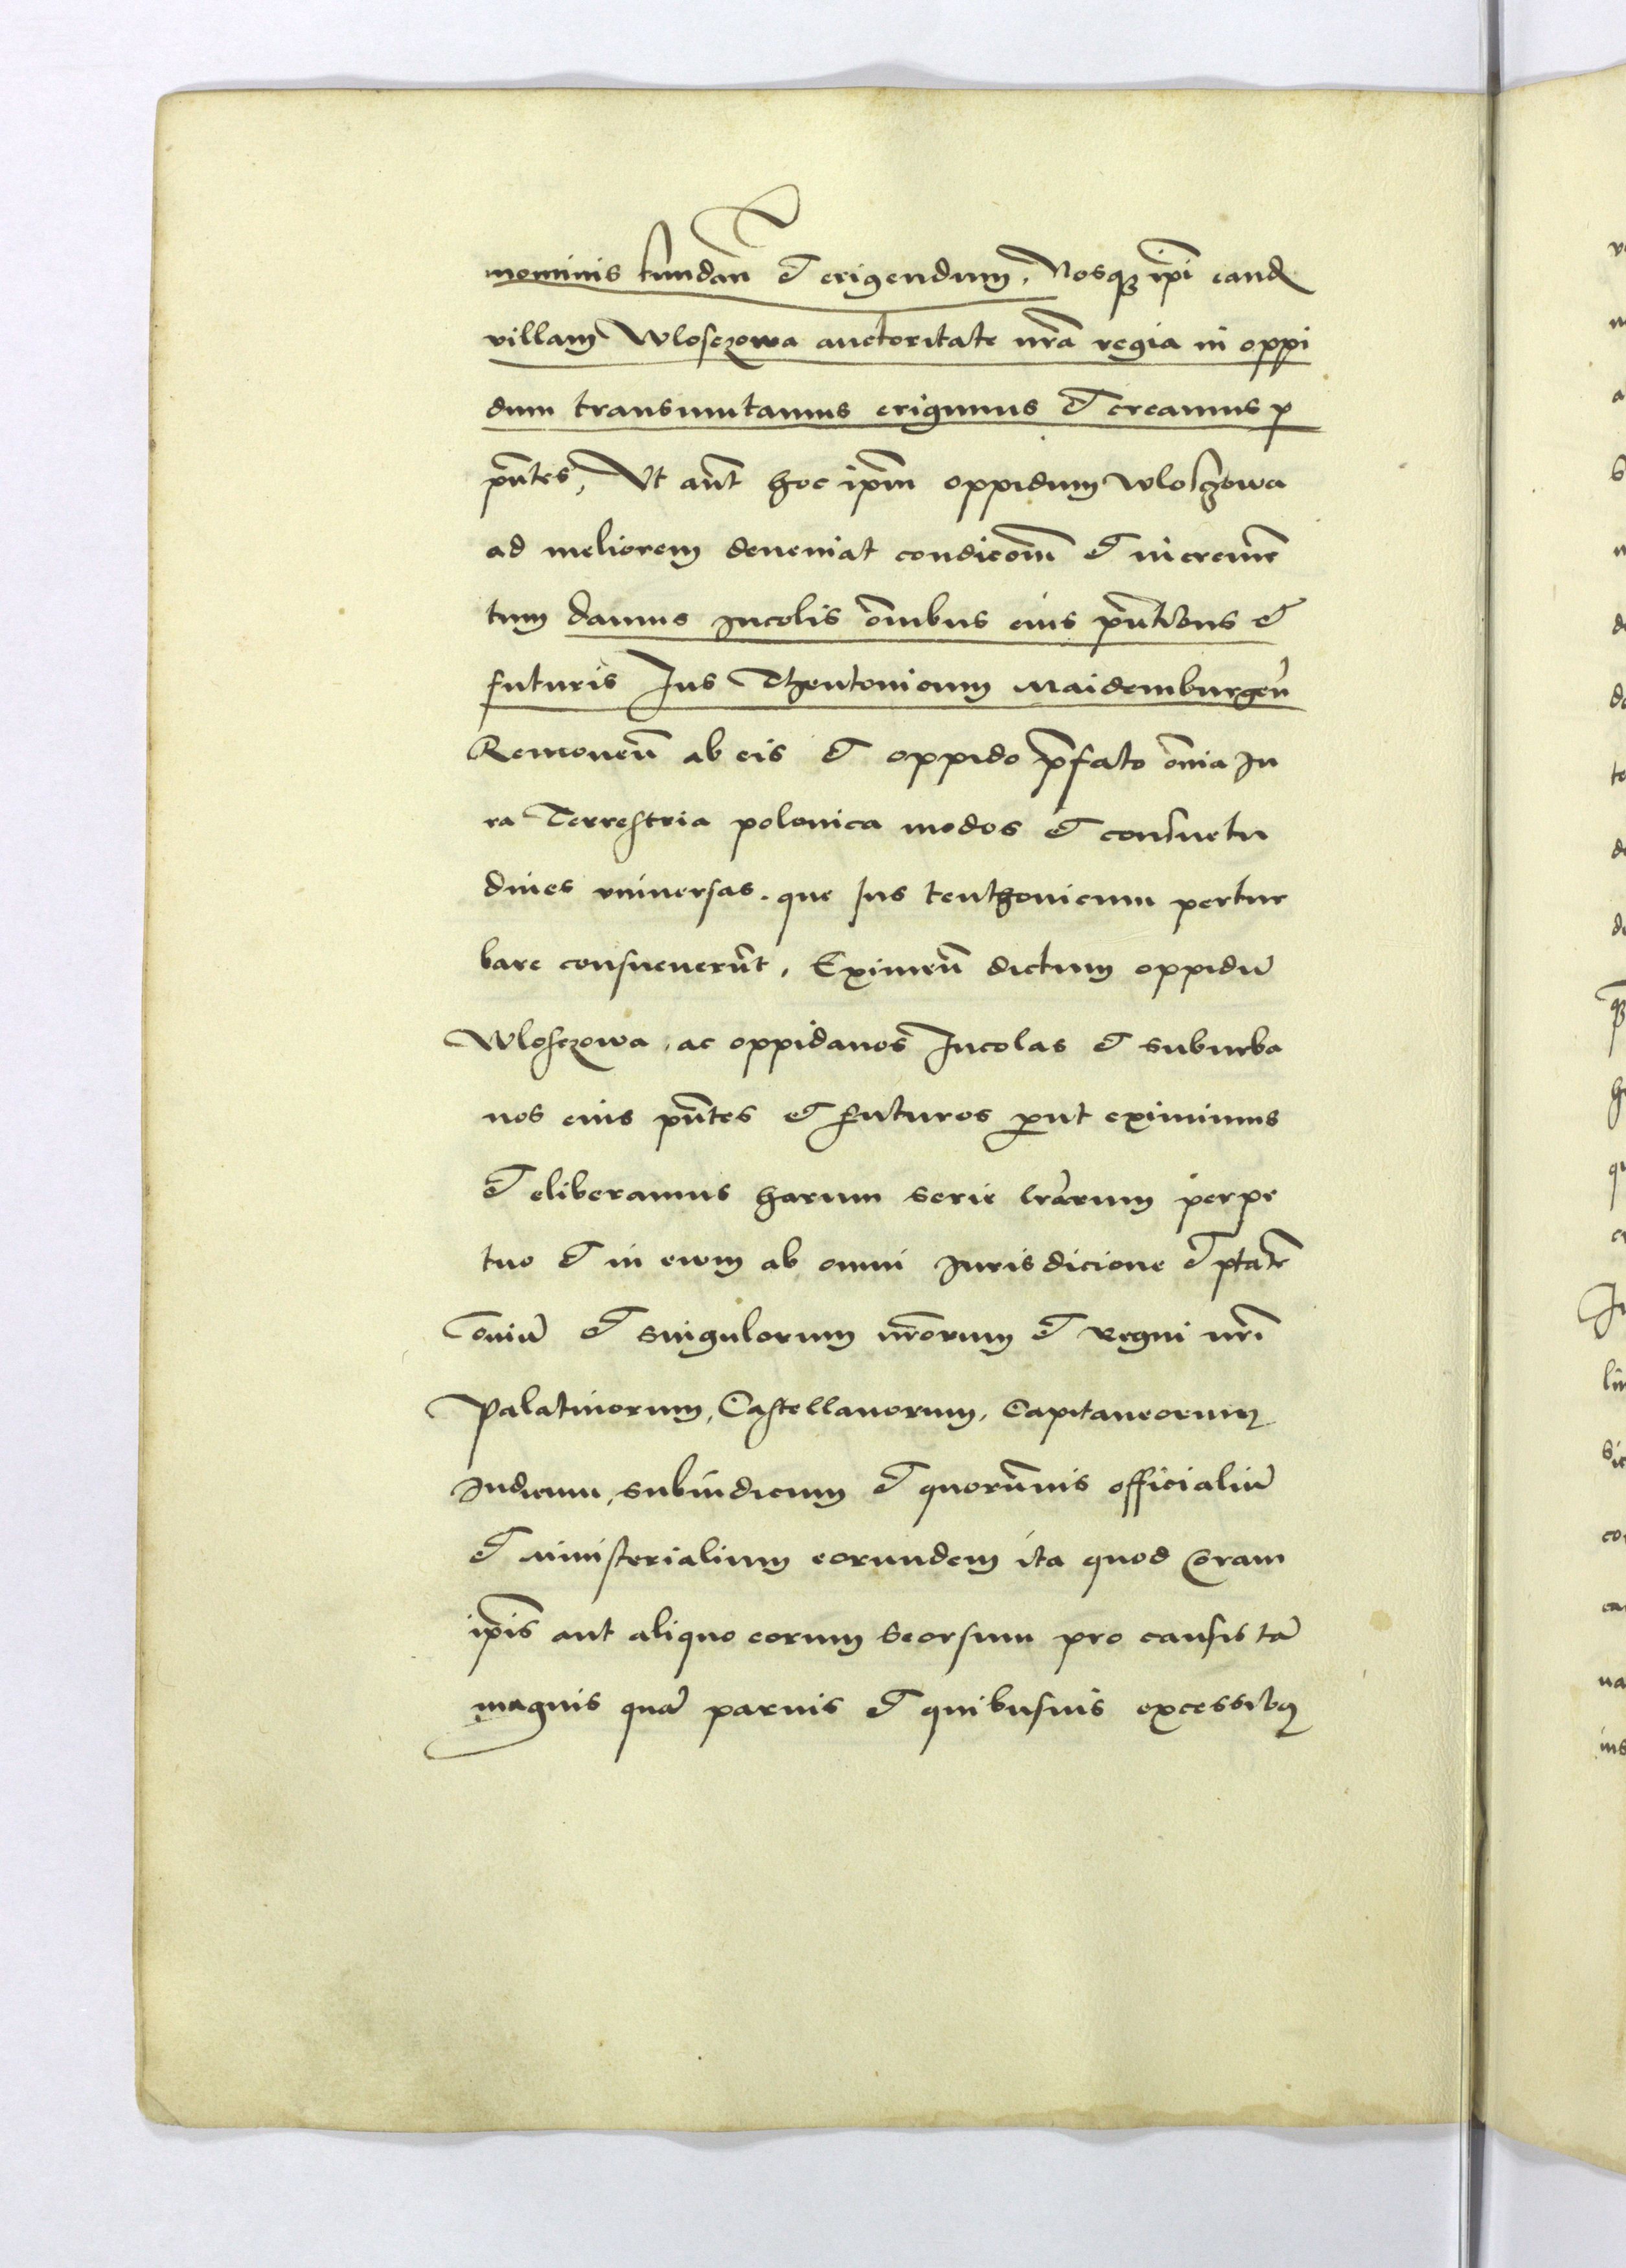 nominis fundan̄ et erigendum, Nosq3 ip̄i eand
villam Wlosczowa auctoritate nr̄a regia in oppi
dum transmutamus erigimus et creamus p
pn̄tes, Vt aūt hoc ip̄m oppidum Wlosczowa
ad meliorem deveniat condicōm̄ et incremē
tum damus incolis ōnibus eius pn̄tibus et
futuris Jus Theutonicum Maidemburgen̄
Removen̄ ab eis et oppido p̄fato ōnia Ju
ra Terrestria polonica modos et consuetu
dines vniversas. que Jus teuthonicum pertur
bare consueverūt, Eximen̄ dictum oppidū
Wlosczowa, ac oppidanos Incolas et suburba
nos eius pn̄tes et futuros p̄ut eximimus
et eliberamus harum serie lr̄arum perpe
tuo et in evum ab omni Jurisdicione et ptātē
ōniū et singulorum nr̄orum et Regni nr̄i
Palatinorum, Castellanorum, Capitaneorum
Judicum, subiudicum et quorūvis officialiū
et ministerialium eorundem ita quod Coram
ip̄is aut aliquo eorum seorsum pro causis tā
magnis quā parvis et quibusvis excessibꝰ